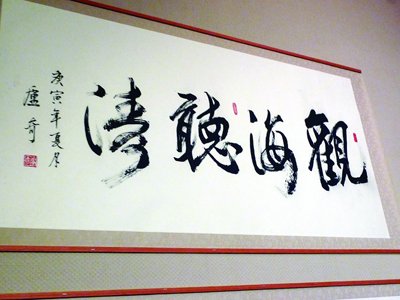 觀海聽濤
庚寅年夏月